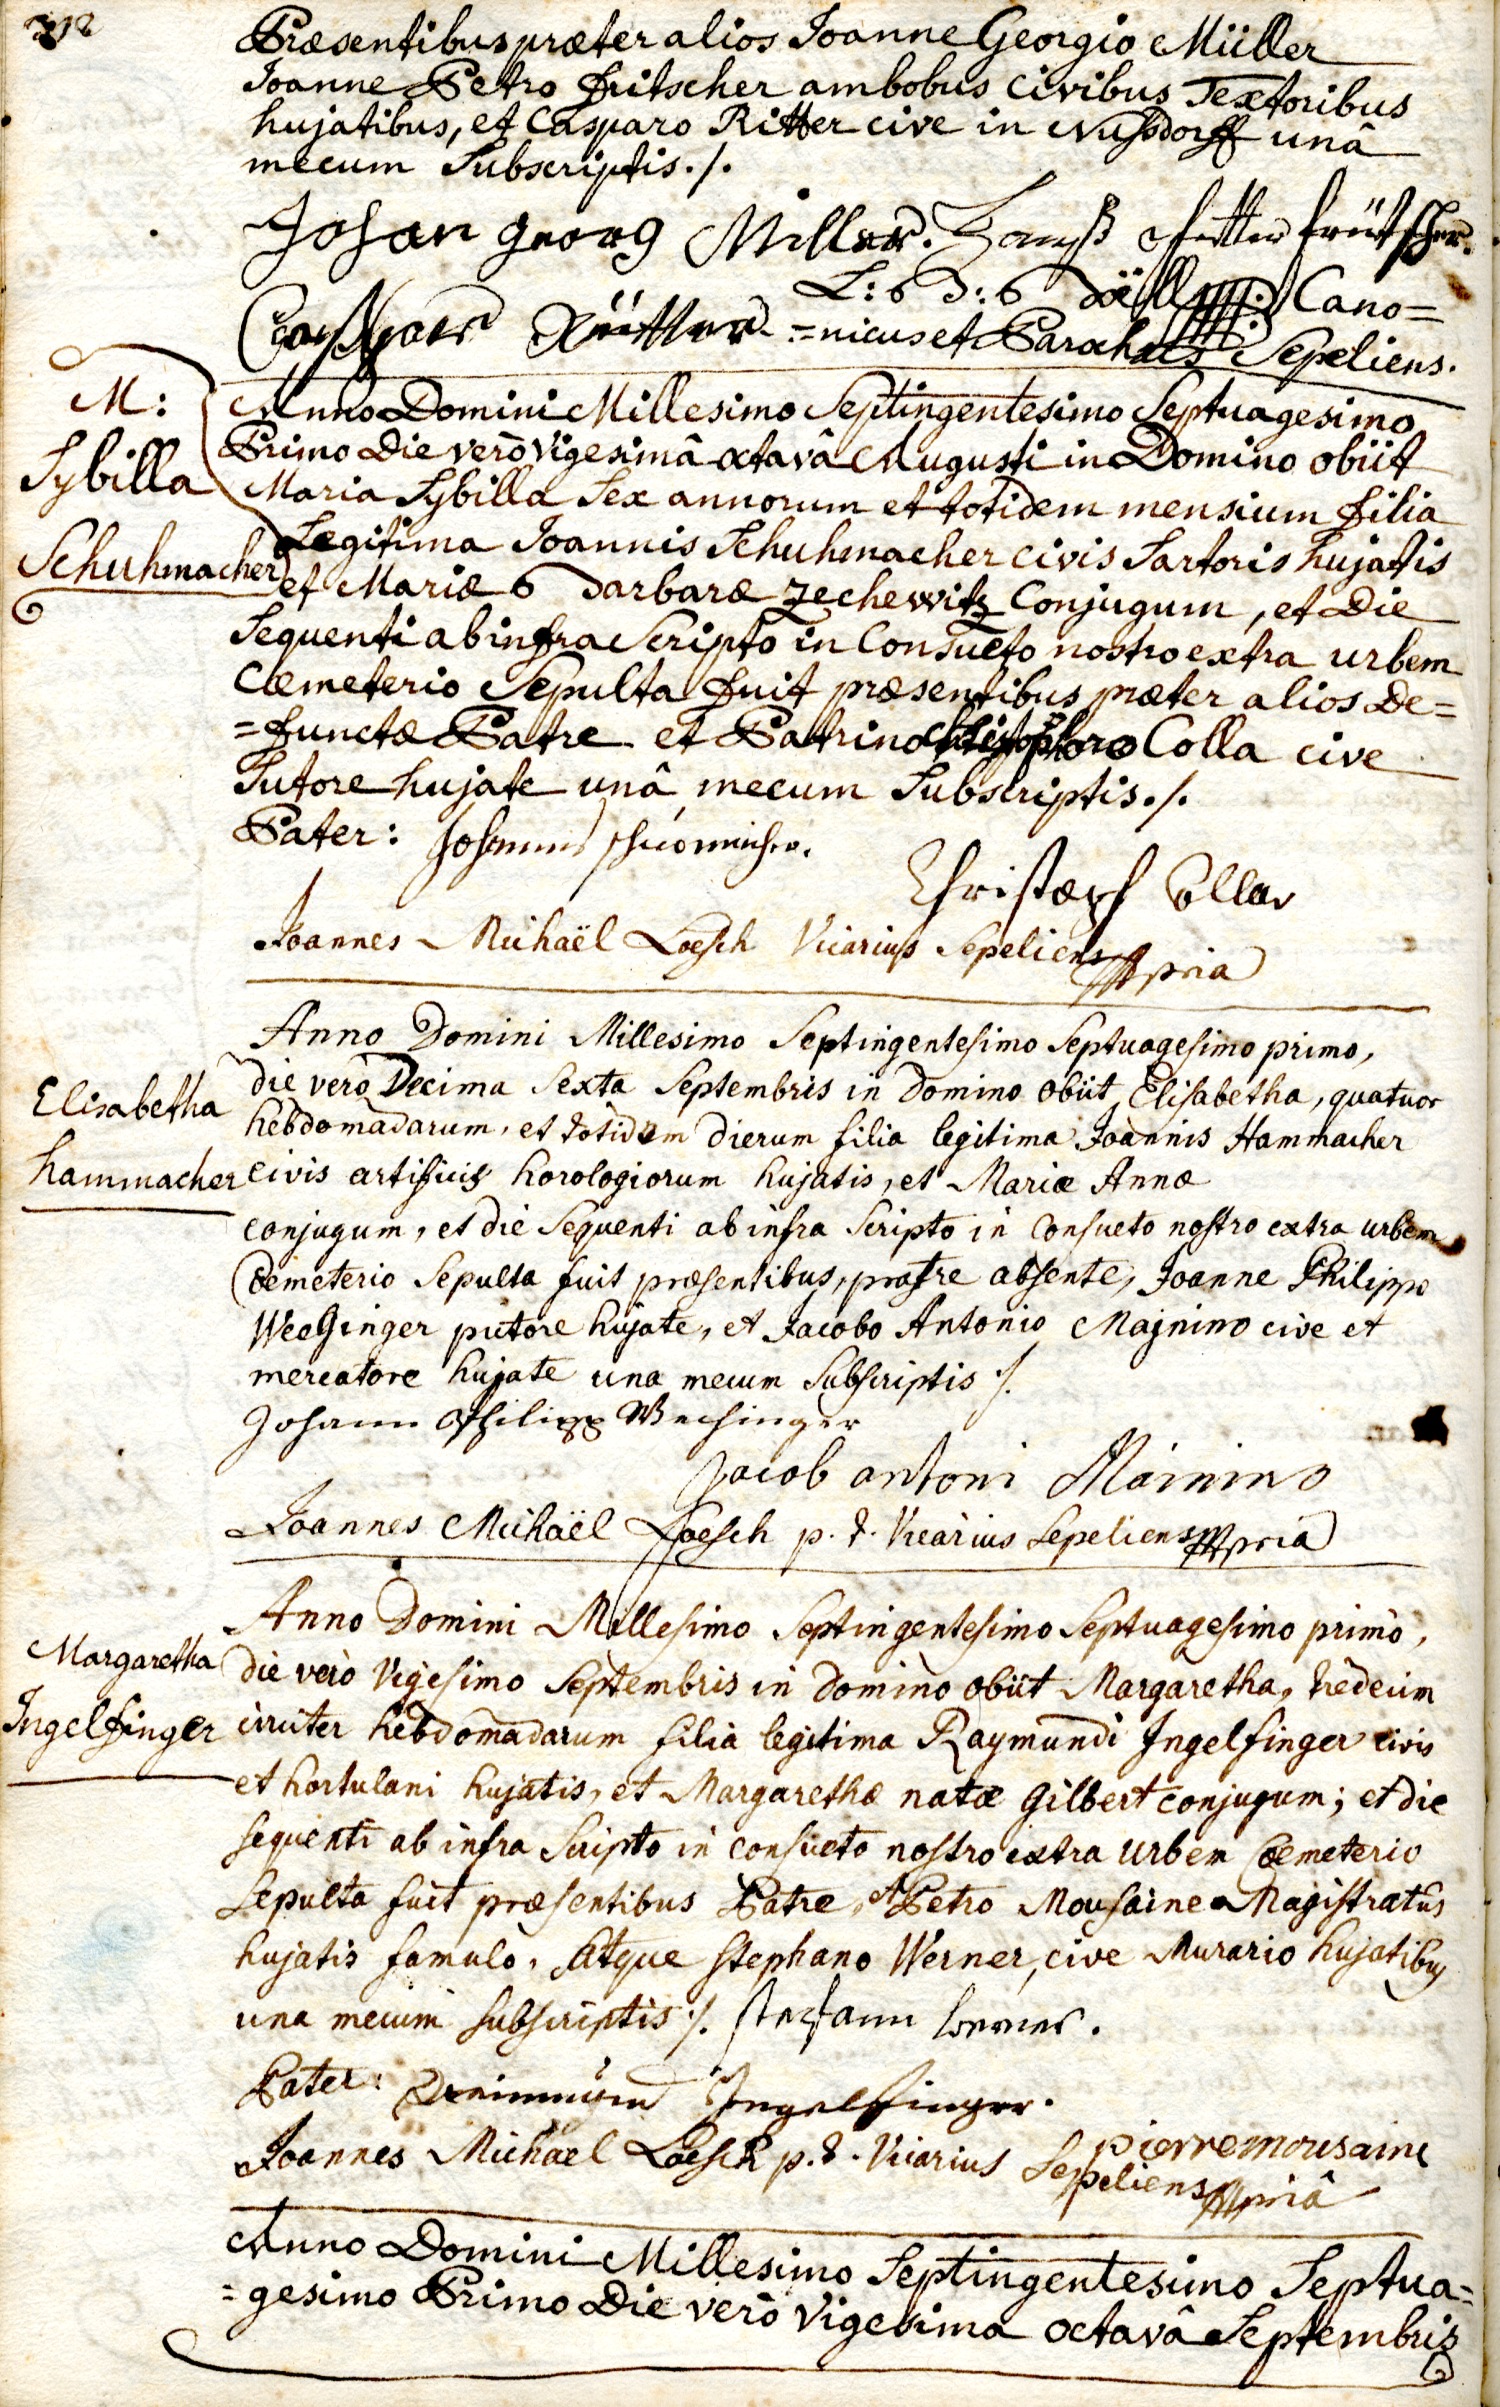 Præsentibus præter alios Joanne Georgio Müller
Joanne Petro fritscher ambobus Civibus Textoribus
hujatibus, et Casparo Ritter cive in Nussdorff unâ
mecum Subscriptis ./.
Johan georg Miller.
Cano=
=nicus et Parochus Sepeliens.
M:
Sybilla
Schuhmacher
Anno Domini Millesimo Septingentesimo Septuagesimo
Primo Die verò vigesimâ octavâ Augusti in Domino obiit
Maria Sybilla Sex annorum et totidem mensium filia
Legitima Joannis Schuhmacher civis Sartoris hujatis
et Mariæ Barbaræ Zechewitz Conjugum, et Die
Sequenti ab infra Scripto in Consueto nostro extra urbem
Cæmeterio Sepulta fuit præsentibus præter alios De=
=functæ Patre et Patrino Christophoro Colla cive
Sutore hujate unâ mecum Subscriptis ./.
Pater: Johannes
Christoph Collar
Joannes Michaël Loesch Vicarius Sepeliens mpria
Elisabetha
hammacher
Anno Domini Millesimo Septingentesimo Septuagesimo primo,
die verò Decima Sexta Septembris in Domino obiit Elisabetha, quatuor
hebdomadarum, et totidem dierum filia legitima Joannis Hammacher
civis artificis horologiorum hujatis, et Mariæ Annæ
conjugum, et die Sequenti ab infra Scripto in Consueto nostro extra urbem
Coemeterio Sepulta fuit præsentibus, patre absente, Joanne Philippo
Weckinger pictore hujate, et Jacobo Antonio Majnino cive et
mercatore hujate una mecum Subscriptis ./.
Johann Philipp Wechinger
Jacob antoni Mainino
Joannes Michaël Loesch p. t. Vicarius Sepeliens mpria
Margaretha
Ingelfinger
Anno Domini Millesimo Septingentesimo Septuagesimo primò,
die verò Vigesimo Septembris in Domino obiit Margaretha, tredecim
circiter hebdomadarum filia legitima Raymundi Ingelfinger civis
et hortulani hujatis, et Margarethæ natæ Gilbert conjugum; et die
sequenti ab infra Scripto in consueto nostro extra urbem Coemeterio
Sepulta fuit præsentibus Patre, et Petro Mousaine Magistratûs
hujatis famulo, Atque Stephano Werner, cive Murario hujatibus
una mecum subscriptis ./. Stefann werner.
Pater: Ingelfinger.
pierre mousaine
Joannes Michael Loesch p. t. Vicarius Sepeliens mpriâ
Anno Domini Millesimo Septingentesimo Septua=
=gesimo Primo Die verò vigesima octavâ Septembris